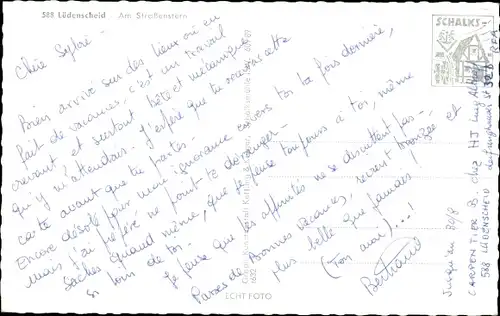 588 Lüdenscheid Am Straßenstern
SCHALKS-
Chère Sylvie -
Bien arrivé sur des lieux où en
fait de vacances, c'est un travail
crevant et surtout bête et mécanique
qui m'attendait. J'espère que tu recevras cette
carte avant que tu partes -
Encore désolé pour mon ignorance envers toi la fois dernière,
mais j'ai préféré ne point te déranger -
Saches quand même, que je pense toujours à toi, même
si loin de toi -
Je pense que les affinités ne se discuttent pas -
Passes de bonnes vacances, revient bronzée et
plus belle que jamais !
(Ton moi) ...!
Bertrand
ECHT FOTO
1632
Jusqu'au 30/8
CARPENTIER B. chez HJ
588 LÜDENSCHEID
RFA